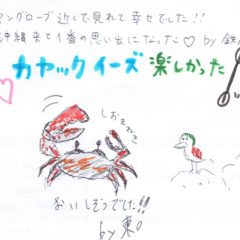 マングローブ近くで見れて幸せでした!!
沖縄来て1番の思い出になった♡ by 鉄
カヤックイーズ楽しかった
しおまねき
おいしそうでした!!
by 東